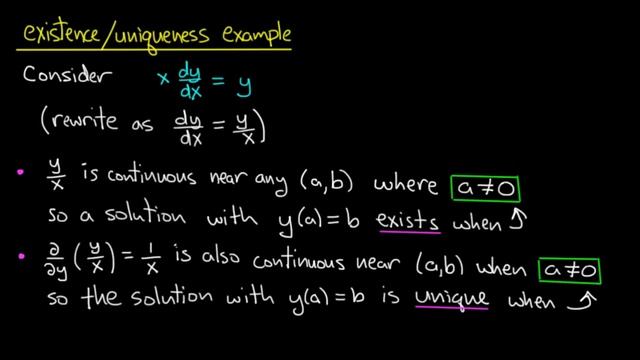 existence/uniqueness example
Consider x dy/dx = y
(rewrite as dy/dx = y/x)
• y/x is continuous near any (a,b) where a≠0
so a solution with y(a)=b exists when ↗
• ∂/∂y (y/x) = 1/x is also continuous near (a,b) when a≠0
so the solution with y(a)=b is unique when ↗